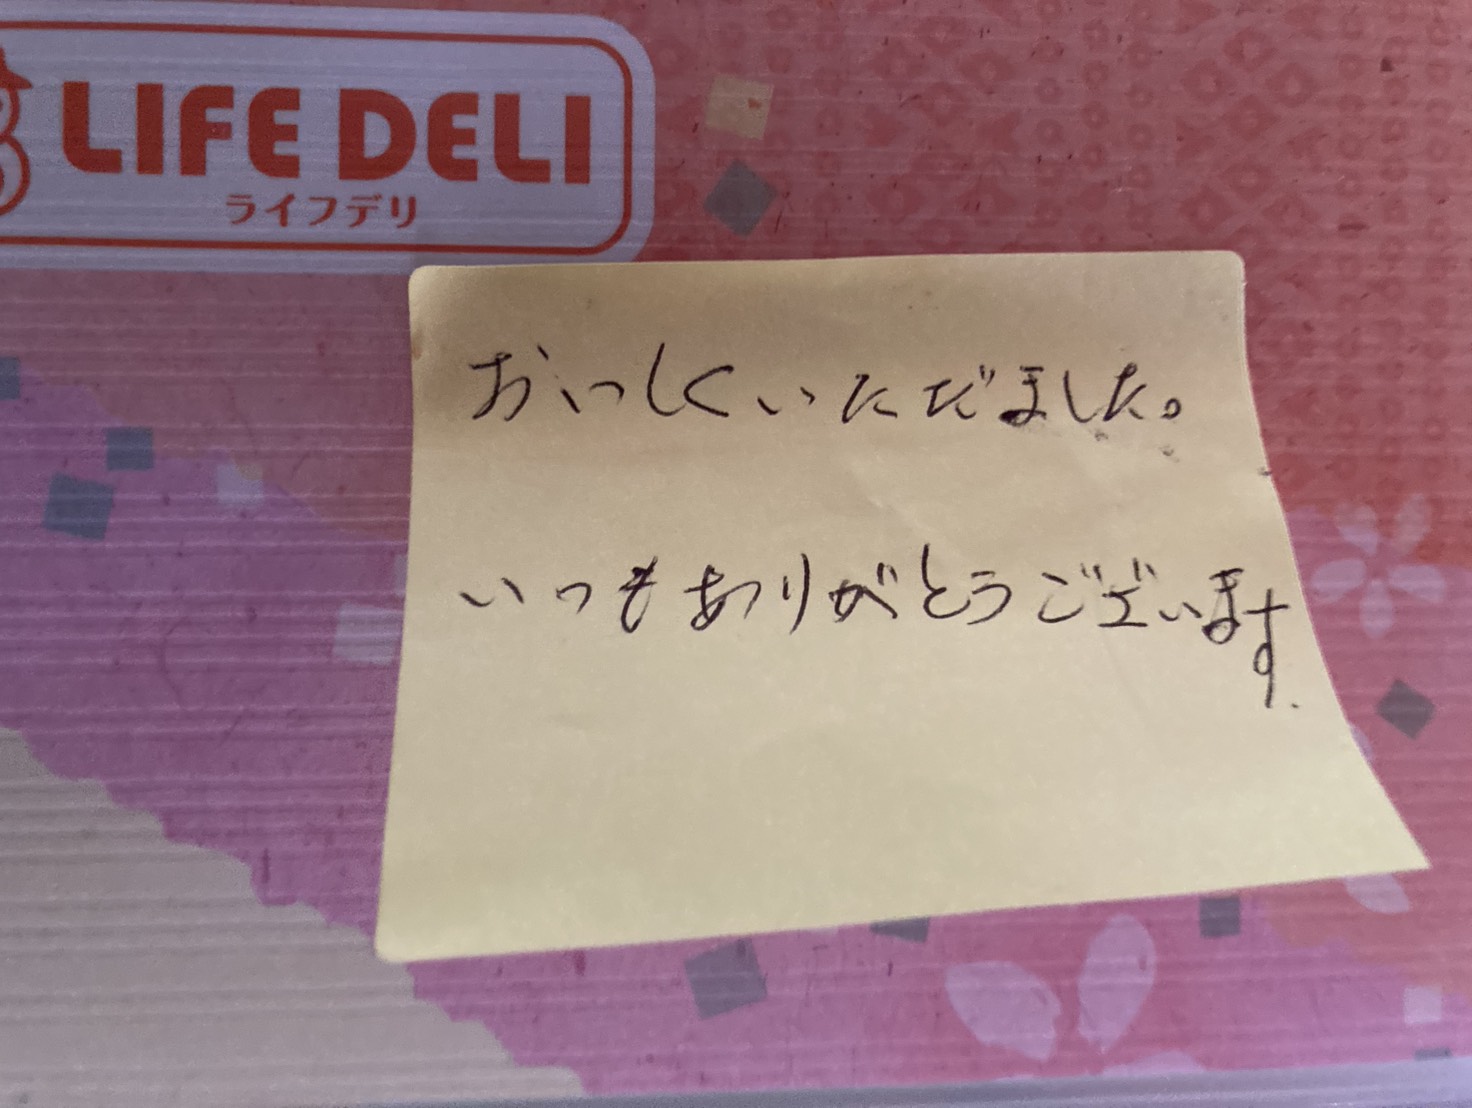 LIFE DELI
ライフデリ
おいしくいただました。
いつもありがとうございます.